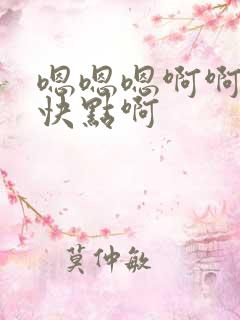 嗯嗯嗯啊啊
快點啊
莫仲敏